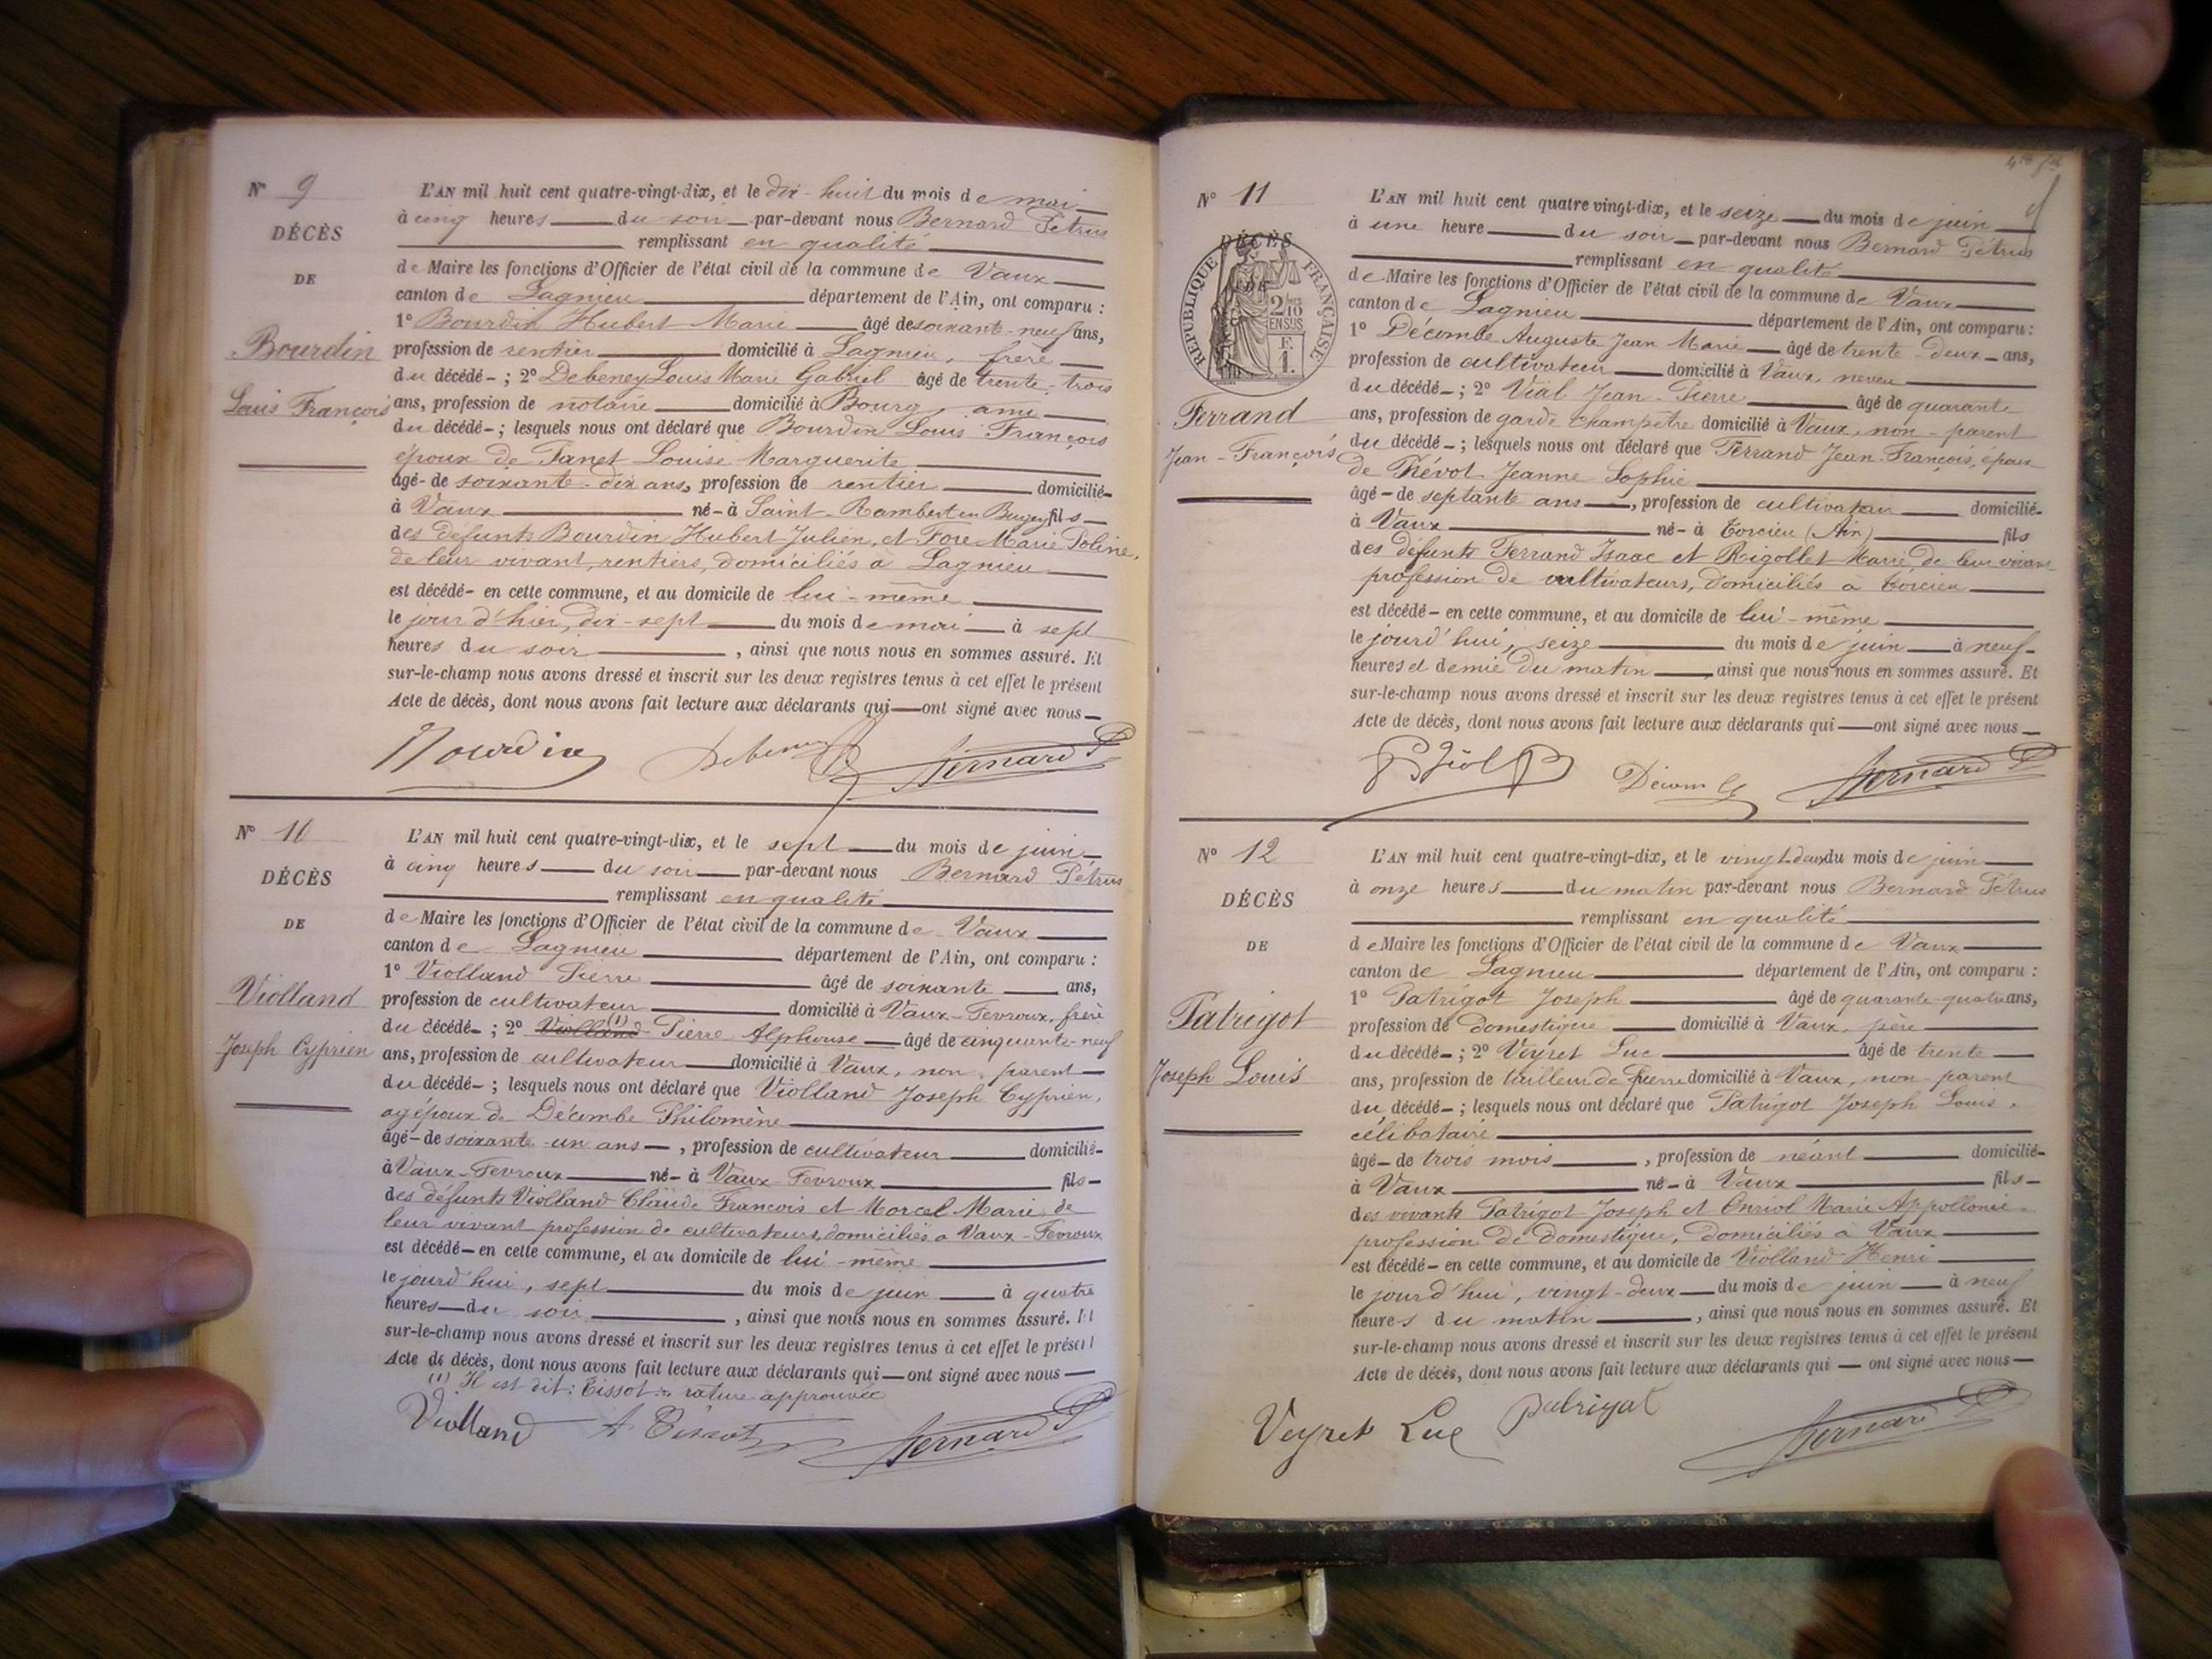 N° 9
DÉCÈS
DE
Bourdin
Louis François
L'AN mil huit cent quatre-vingt-dix, et le dix-huit du mois de mai
à cinq heures du soir par-devant nous Bernard Pétrus
remplissant en qualité
de Maire les fonctions d'Officier de l'état civil de la commune de Vaux
canton de Lagnieu département de l'Ain, ont comparu :
1° Bourdin Hubert Marie âgé de soixante-neuf ans,
profession de rentier domicilié à Lagnieu, frère
du décédé- ; 2° Debeney Louis Marie Gabriel âgé de trente-trois
ans, profession de notaire domicilié à Bourg, ami
du décédé- ; lesquels nous ont déclaré que Bourdin Louis François
époux de Tanet Louise Marguerite
âgé- de soixante-dix ans, profession de rentier domicilié-
à Vaux né- à Saint-Rambert en Bugey fils
des défunts Bourdin Hubert Julien, et Fore Marie Poline,
de leur vivant, rentiers, domiciliés à Lagnieu
est décédé- en cette commune, et au domicile de lui-même
le jour d'hier, dix-sept du mois de mai à sept
heures du soir , ainsi que nous nous en sommes assuré. Et
sur-le-champ nous avons dressé et inscrit sur les deux registres tenus à cet effet le présent
Acte de décès, dont nous avons fait lecture aux déclarants qui ont signé avec nous
Bourdin Debeney Bernard P
N° 10
DÉCÈS
DE
Violland
Joseph Cyprien
L'AN mil huit cent quatre-vingt-dix, et le sept du mois de juin
à cinq heures du soir par-devant nous Bernard Pétrus
remplissant en qualité
de Maire les fonctions d'Officier de l'état civil de la commune de Vaux
canton de Lagnieu département de l'Ain, ont comparu :
1° Violland Pierre âgé de soixante ans,
profession de cultivateur domicilié à Vaux-Fevroux, frère
du décédé- ; 2° Violland (1) Pierre Alphonse âgé de cinquante-neuf
ans, profession de cultivateur domicilié à Vaux, non parent
du décédé- ; lesquels nous ont déclaré que Violland Joseph Cyprien,
agé époux de Décombe Philomène
âgé- de soixante-un ans , profession de cultivateur domicilié-
à Vaux-Fevroux né- à Vaux Fevroux fils
des défunts Violland Claude François et Morcel Marie, de
leur vivant profession de cultivateurs, domiciliés à Vaux-Fevroux
est décédé- en cette commune, et au domicile de lui-même
le jourd'hui, sept du mois de juin à quatre
heures du soir , ainsi que nous nous en sommes assuré. Et
sur-le-champ nous avons dressé et inscrit sur les deux registres tenus à cet effet le présent
Acte de décès, dont nous avons fait lecture aux déclarants qui ont signé avec nous
(1) Il est dit : Tissot : rature approuvée
Violland A Tissot Bernard P
N° 11
DÉCÈS
DE
RÉPUBLIQUE FRANÇAISE
2/10 EN SUS
F. 1.
Ferrand
Jean-François
L'AN mil huit cent quatre vingt-dix, et le seize du mois de juin
à une heure du soir par-devant nous Bernard Pétrus
remplissant en qualité
de Maire les fonctions d'Officier de l'état civil de la commune de Vaux
canton de Lagnieu département de l'Ain, ont comparu :
1° Décombe Auguste Jean Marie âgé de trente-deux ans,
profession de cultivateur domicilié à Vaux, neveu
du décédé- ; 2° Vial Jean-Pierre âgé de quarante
ans, profession de garde champêtre domicilié à Vaux, non-parent
du décédé- ; lesquels nous ont déclaré que Ferrand Jean-François, époux
de Thévot Jeanne Sophie
âgé- de septante ans , profession de cultivateur domicilié-
à Vaux né- à Torcieu (Ain) fils
des défunts Ferrand Isaac et Rigollet Marie, de leur vivant
profession de cultivateurs, domiciliés à Torcieu
est décédé- en cette commune, et au domicile de lui-même
le jourd'hui, seize du mois de juin à neuf
heures et demie du matin ainsi que nous nous en sommes assuré. Et
sur-le-champ nous avons dressé et inscrit sur les deux registres tenus à cet effet le présent
Acte de décès, dont nous avons fait lecture aux déclarants qui ont signé avec nous
Décombe Bernard P
N° 12
DÉCÈS
DE
Patrigot
Joseph Louis
L'AN mil huit cent quatre-vingt-dix, et le vingt-deux du mois de juin
à onze heures du matin par-devant nous Bernard Pétrus
remplissant en qualité
de Maire les fonctions d'Officier de l'état civil de la commune de Vaux
canton de Lagnieu département de l'Ain, ont comparu :
1° Patrigot Joseph âgé de quarante-quatre ans,
profession de domestique domicilié à Vaux, père
du décédé- ; 2° Veyret Luc âgé de trente
ans, profession de tailleur de pierre domicilié à Vaux, non-parent
du décédé- ; lesquels nous ont déclaré que Patrigot Joseph Louis,
célibataire
âgé- de trois mois , profession de néant domicilié-
à Vaux né- à Vaux fils
des vivants Patrigot Joseph et Curiol Marie Appollonie,
profession de domestique, domiciliés à Vaux
est décédé- en cette commune, et au domicile de Violland Henri
le jourd'hui, vingt-deux du mois de juin à neuf
heures du matin , ainsi que nous nous en sommes assuré. Et
sur-le-champ nous avons dressé et inscrit sur les deux registres tenus à cet effet le présent
Acte de décès, dont nous avons fait lecture aux déclarants qui ont signé avec nous
Veyret Luc Patrigot Bernard P